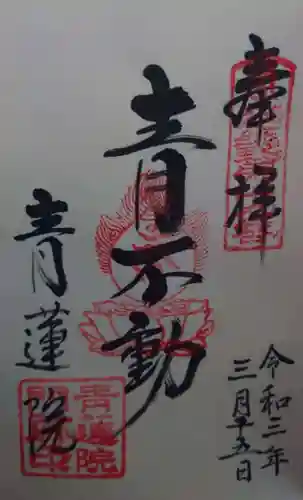 奉拝
令和三年
三月十五日
青不動
青蓮院